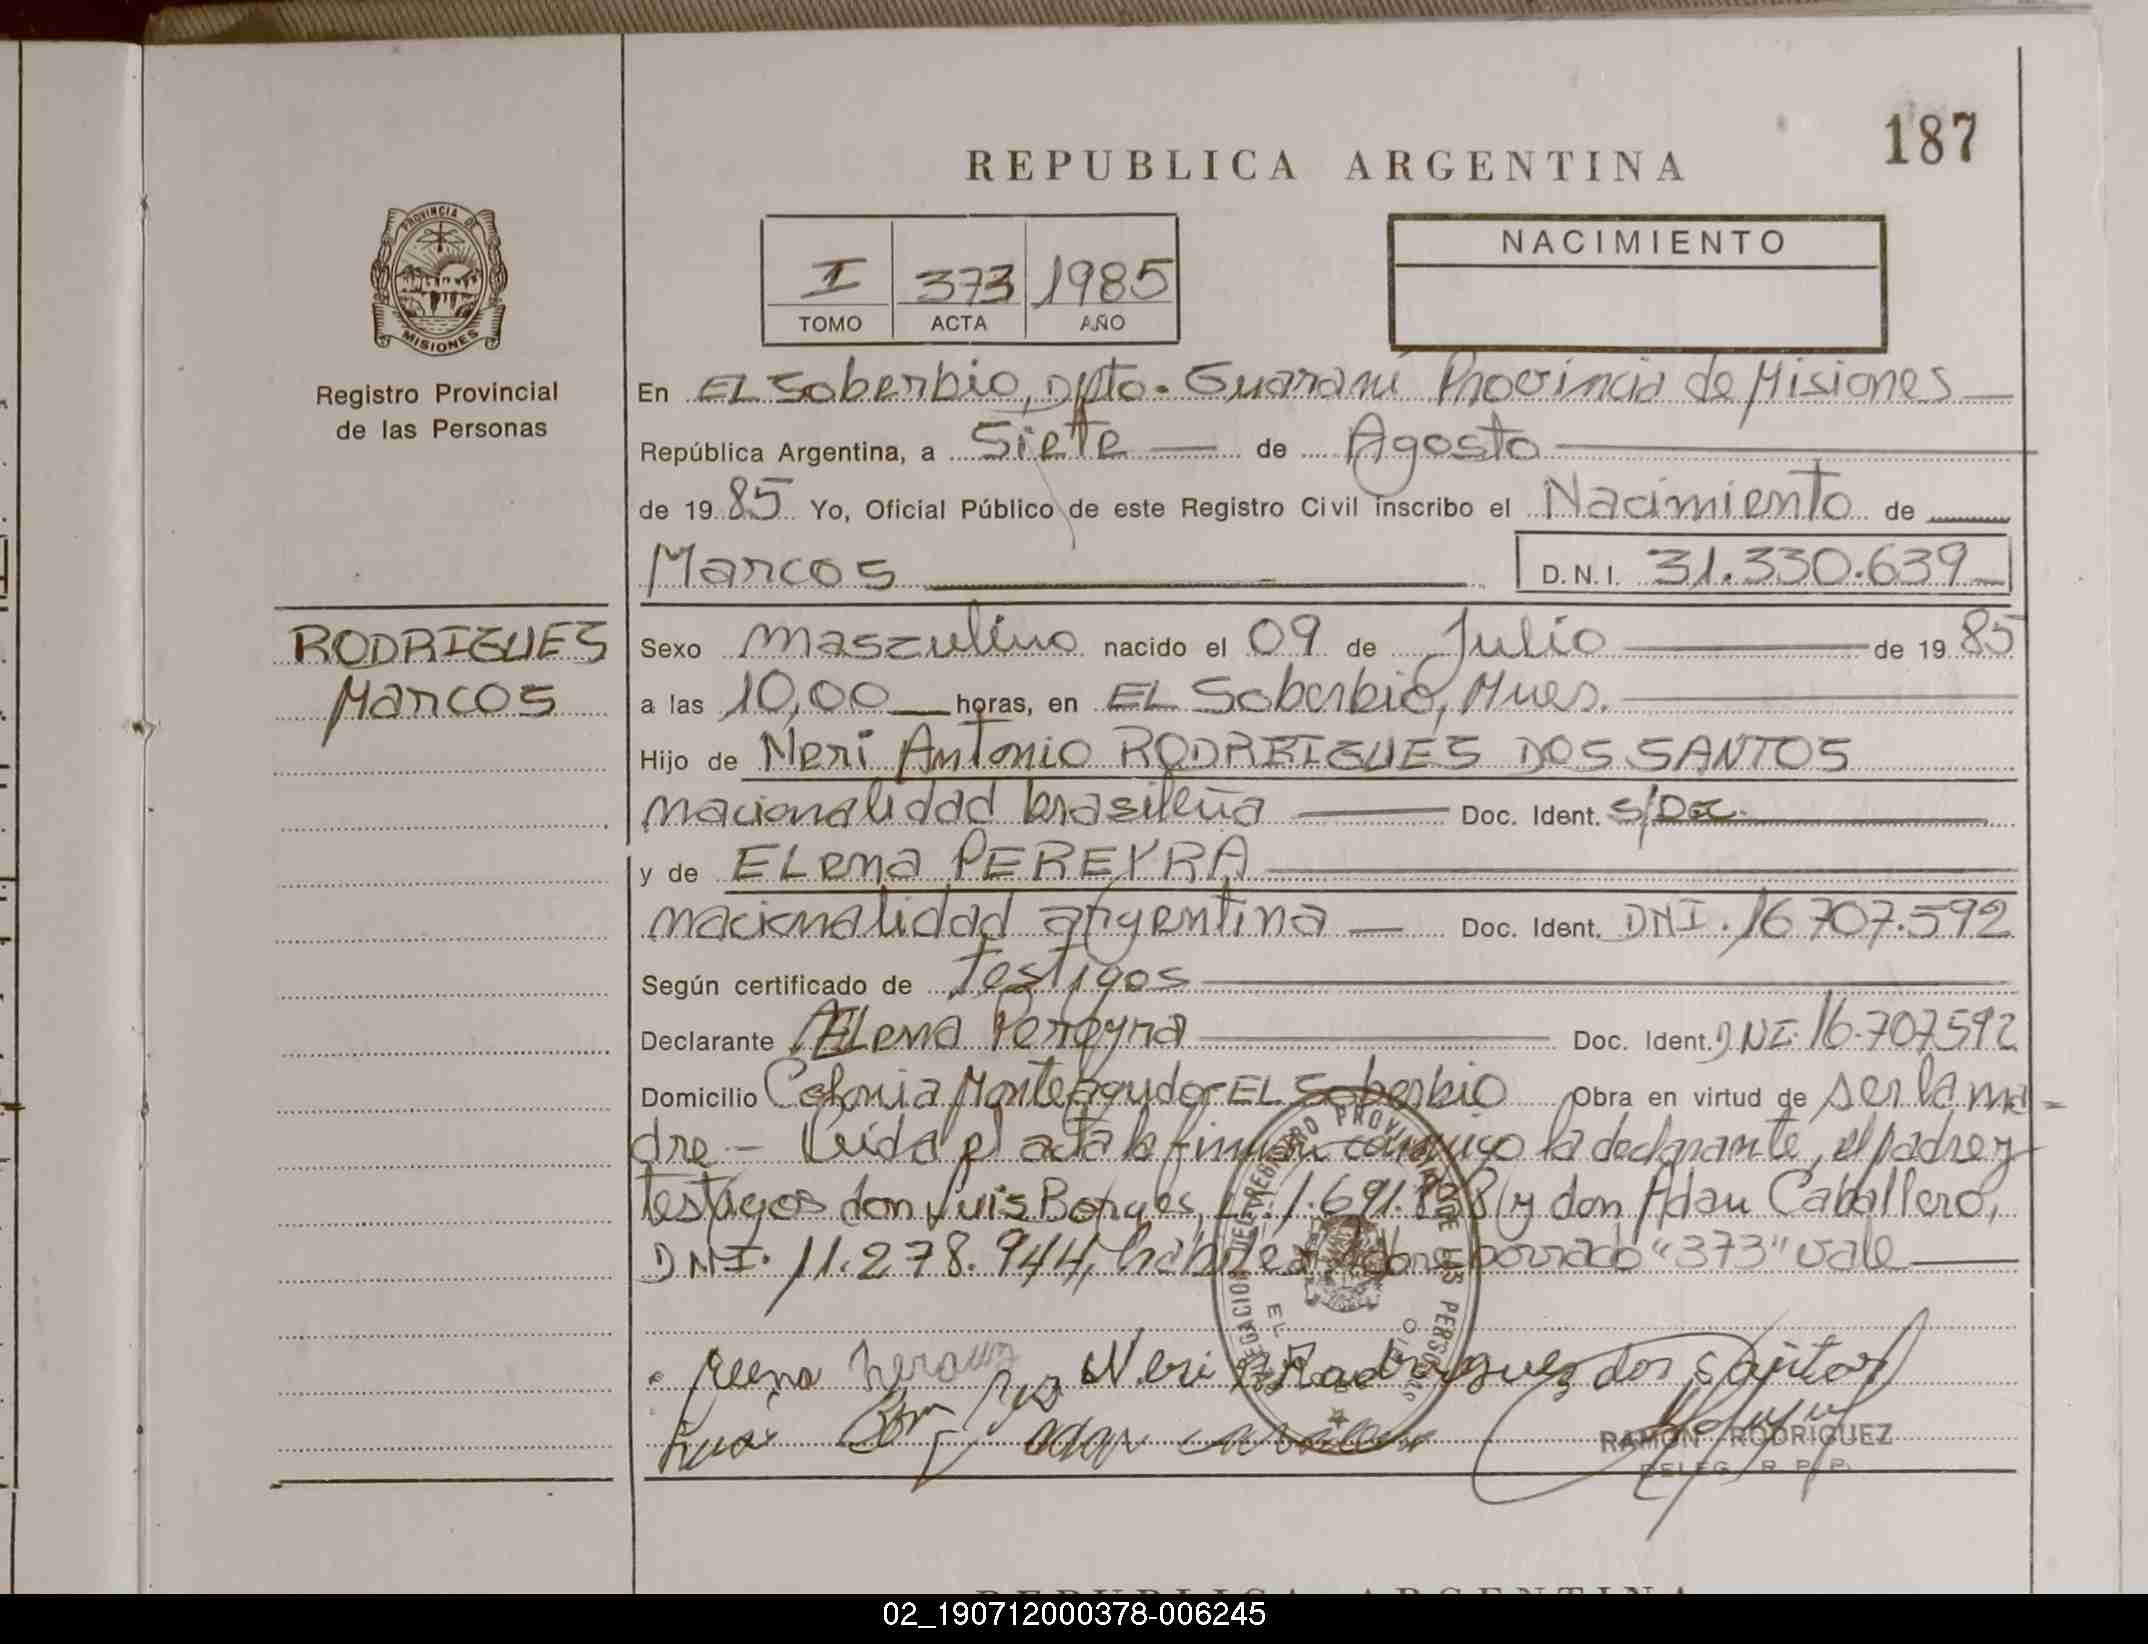 187
REPUBLICA ARGENTINA
PROVINCIA DE
MISIONES
Registro Provincial
de las Personas
I 373 1985
TOMO ACTA AÑO
NACIMIENTO
En EL Soberbio, Dpto. Guaraní Provincia de Misiones
República Argentina, a Siete de Agosto
de 1985 Yo, Oficial Público de este Registro Civil inscribo el Nacimiento de
Marcos D.N.I. 31.330.639
RODRIGUES
Marcos
Sexo masculino nacido el 09 de Julio de 1985
a las 10,00 horas, en EL Soberbio, Mnes.
Hijo de Neri Antonio RODRIGUES DOS SANTOS
nacionalidad brasileña Doc. Ident. s/Doc.
y de ELena PEREYRA
nacionalidad argentina Doc. Ident. DNI. 16707.592
Según certificado de testigos
Declarante ELena Pereyra Doc. Ident. DNI. 16.707592
Domicilio Colonia Monteagudo-EL Soberbio Obra en virtud de ser la ma-
dre - Leída el acta la firman conmigo la declarante, el padre y
testigos don Luis Borges, 1.691. y don Adan Caballero,
DNI. 11.278.944, hábiles sobre borrado "373" vale
DELEGACION DEL REGISTRO PROVINCIAL DE LAS PERSONAS
EL
Neri Rodriguez dos Santos
RAMON RODRIGUEZ
DELEG. R. P. P.
REPUBLICA ARGENTINA
02_190712000378-006245